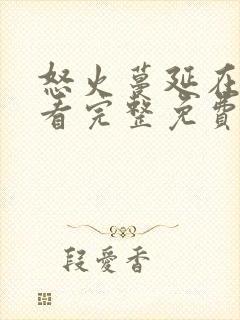 怒火蔓延在
看完整免費
段愛香